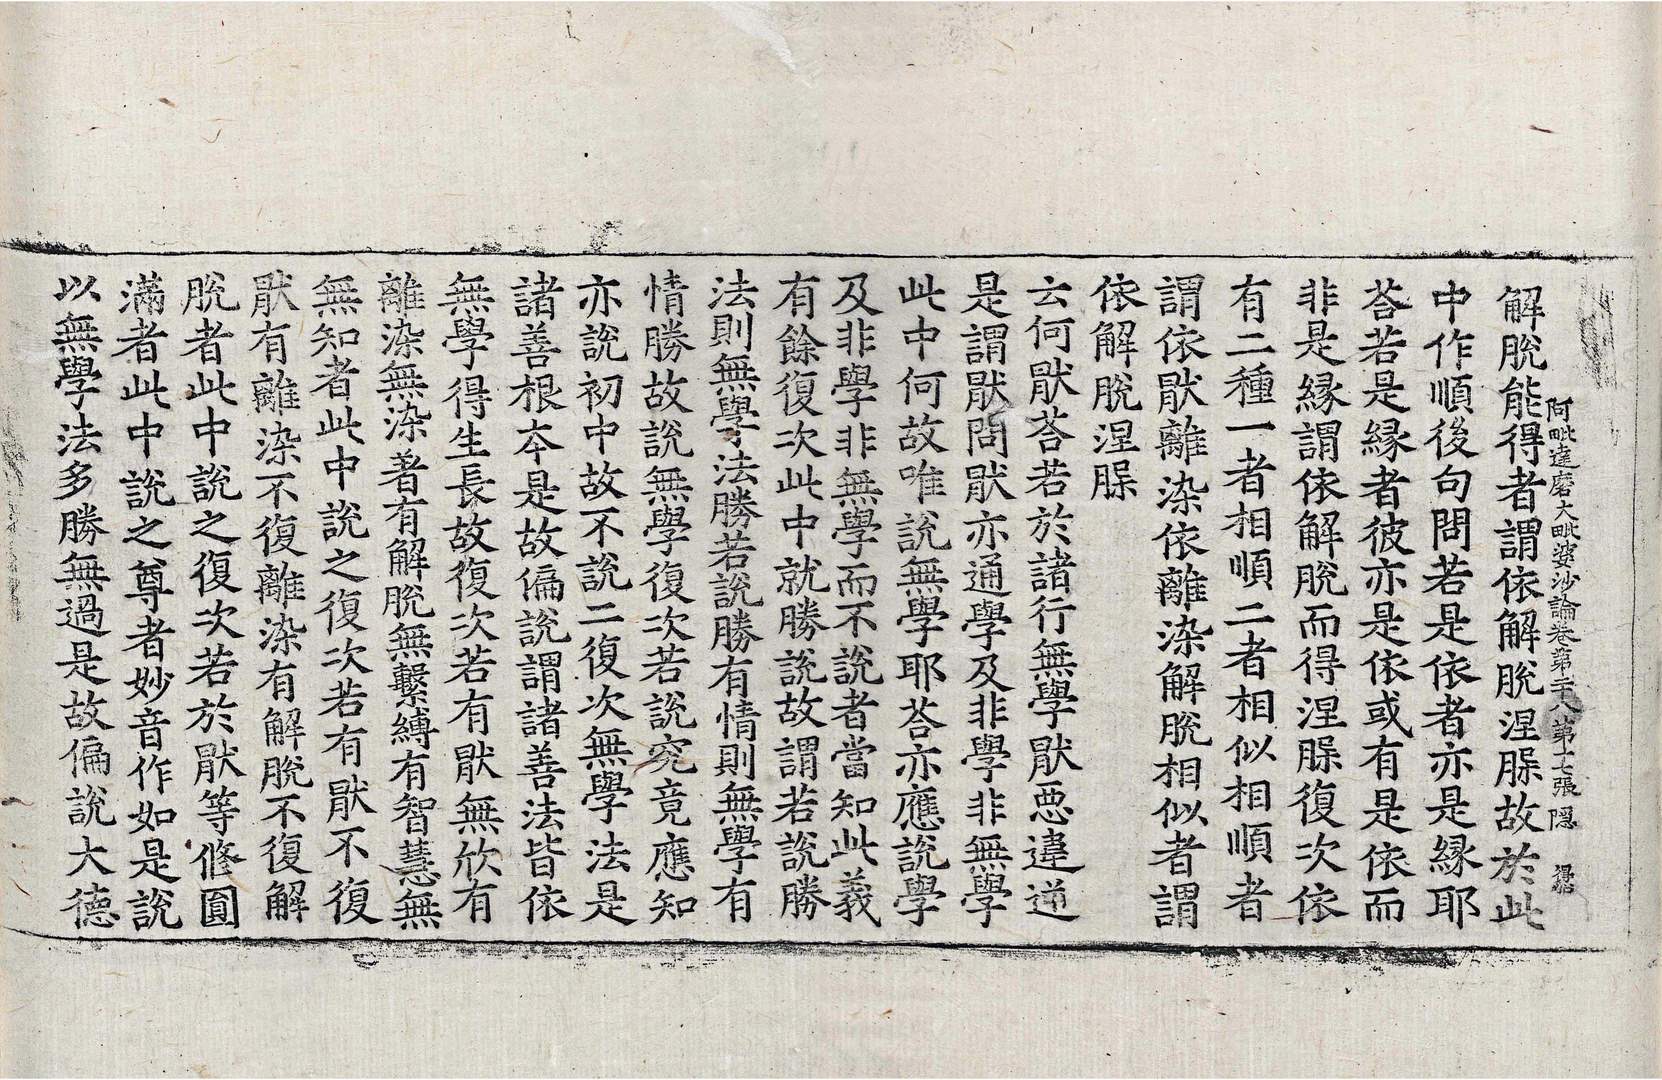 阿毗達磨大毗婆沙論卷第二十八 第十七張 隱
解脫能得者謂依解脫涅槃故於此
中作順後句問若是依者亦是緣耶
荅若是緣者彼亦是依或有是依而
非是緣謂依解脫而得涅槃復次依
有二種一者相順二者相似相順者
謂依猒離染依離染解脫相似者謂
依解脫涅槃
云何猒荅若於諸行無學猒惡違逆
是謂猒問猒亦通學及非學非無學
此中何故唯說無學耶荅亦應說學
及非學非無學而不說者當知此義
有餘復次此中就勝說故謂若說勝
法則無學法勝若說勝有情則無學有
情勝故說無學復次若說究竟應知
亦說初中故不說二復次無學法是
諸善根本是故偏說謂諸善法皆依
無學得生長故復次若有猒無欣有
離染無染著有解脫無繫縛有智慧無
無知者此中說之復次若有猒不復
猒有離染不復離染有解脫不復解
脫者此中說之復次若於猒等修圓
滿者此中說之尊者妙音作如是說
以無學法多勝無過是故偏說大德